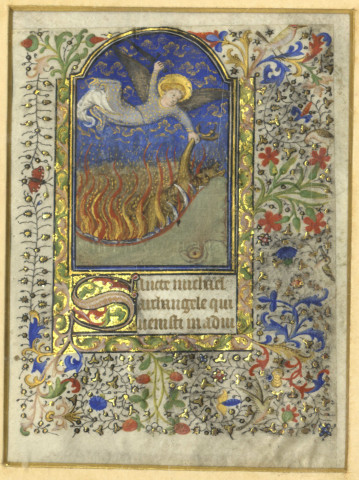 Sancte michael
archangele qui
uenisti in adiu